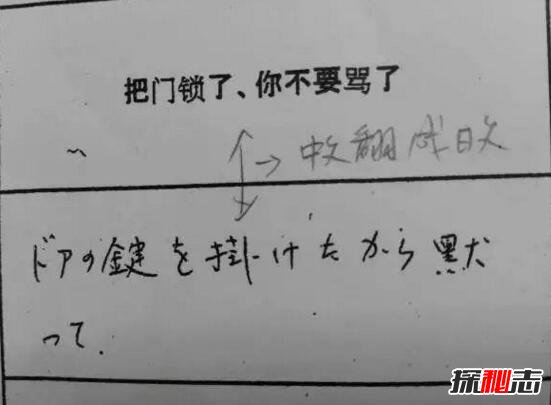 把门锁了、你不要骂了
~
↕→中文翻成日文
ドアの鍵を掛けたから黙
って.
探秘志